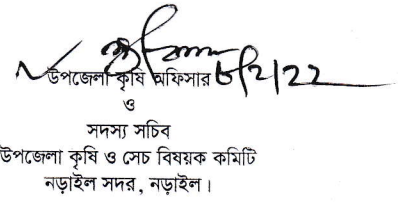 উপজেলা কৃষি অফিসার ৮/২/২২
ও
সদস্য সচিব
উপজেলা কৃষি ও সেচ বিষয়ক কমিটি
নড়াইল সদর, নড়াইল।